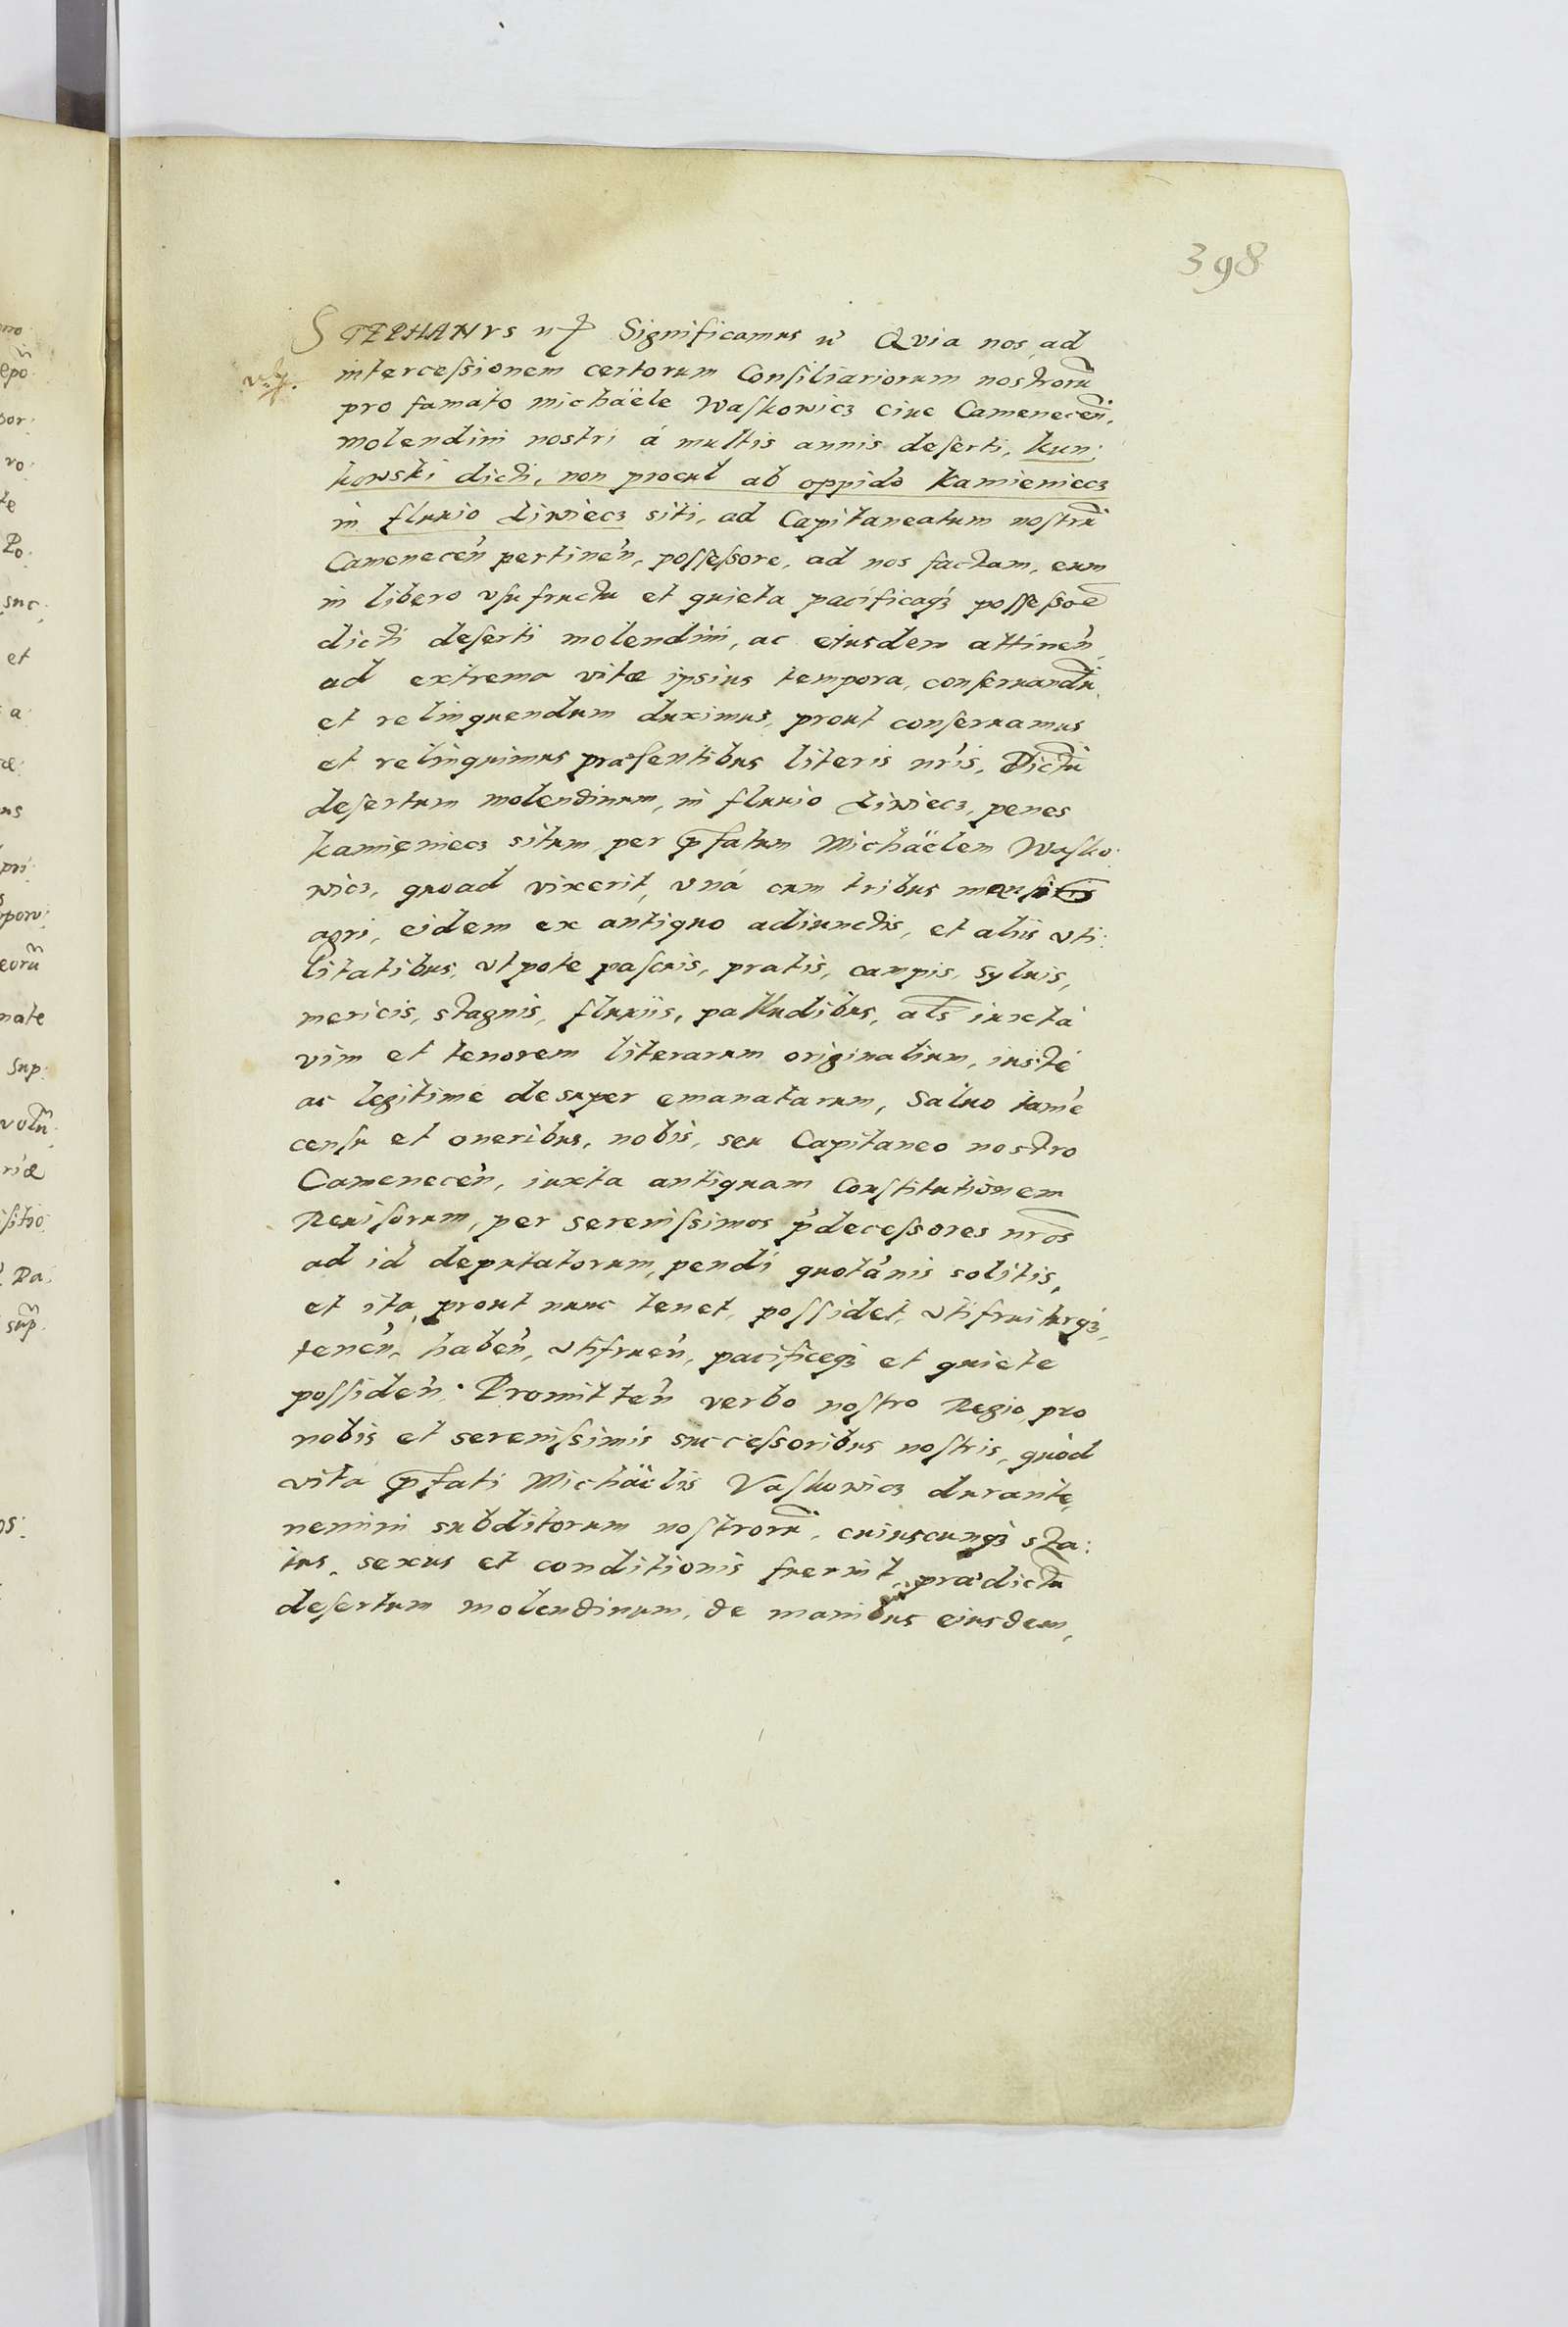 398
STEPHANVS Significamus Quia nos, ad
intercessionem certorum Consiliariorum nostrorũ
pro famato michäele Waskowicz ciue Camenecen̄,
molendini nostri á multis annis deserti, kun:
kowski dicti, non procul ab oppido kamieniecz
in fluuio Liwiecz siti, ad Capitaneatum nostrũ
Camenecen̄ pertinen̄, possessore, ad nos factam, eum
in libero vsufructu et quieta pacificaq3 possessõe
dicti deserti molendini, ac eiusdem attinen̄,
ad extrema vitæ ipsius tempora, conseruandũ
et relinquendum duximus, prout conseruamus
et relinquimus præsentibus literis nr̃is, Dictũ
desertum molendinum, in fluuio Liwiecz, penes
kamieniecz situm per p̄fatum Michäelem Wasko:
wicz, quoad vixerit, vná cum tribus mansis
agri, eidem ex antiquo adiunctis, et aliis vti:
litatibus, vtpote pascuis, pratis, campis, syluis,
mericis, stagnis, fluuiis, palludibus, als̄ iuxtá
vim et tenorem literarum originalium, iusté
ac legitimé desuper emanatarum, Saluo tamẽ
censu et oneribus, nobis, seu Capitaneo nostro
Camenecen̄, iuxta antiquam Constitutionem
Reuisorum, per serenissimos p̄decessores nr̃os
ad id deputatorum, pendi quotãnis solitis,
et ita prout nunc tenet, possidet, vtifruiturq3,
tenen̄, haben̄, vtifruen̄, pacificeq3 et quiete
possiden̄. Promitten̄ verbo nostro Regio pro
nobis et serenissimis successoribus nostris, quòd
vitá p̄fati Michäelis Vaskowicz durante,
nemini subditorum nostrorũ, cuiuscunq3 sta:
tus, sexus et conditionis fuerint, prædictũ
desertum molendinum, de manibus eiusdem,